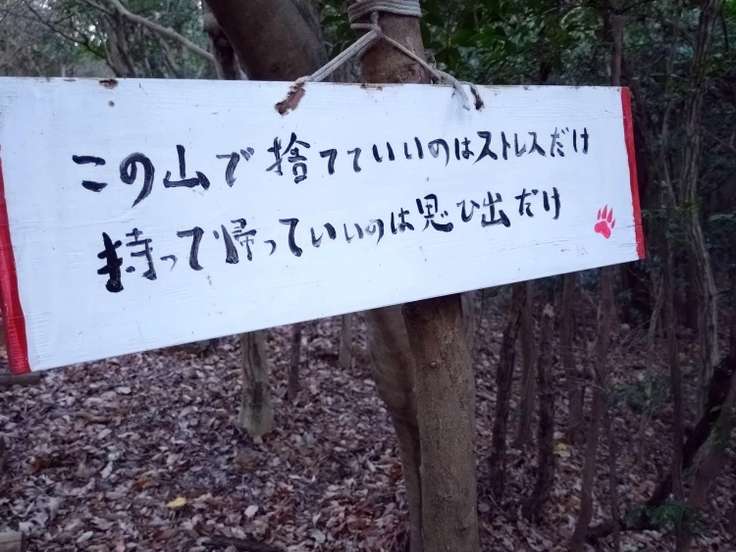 この山で捨てていいのはストレスだけ
持って帰っていいのは思ひ出だけ